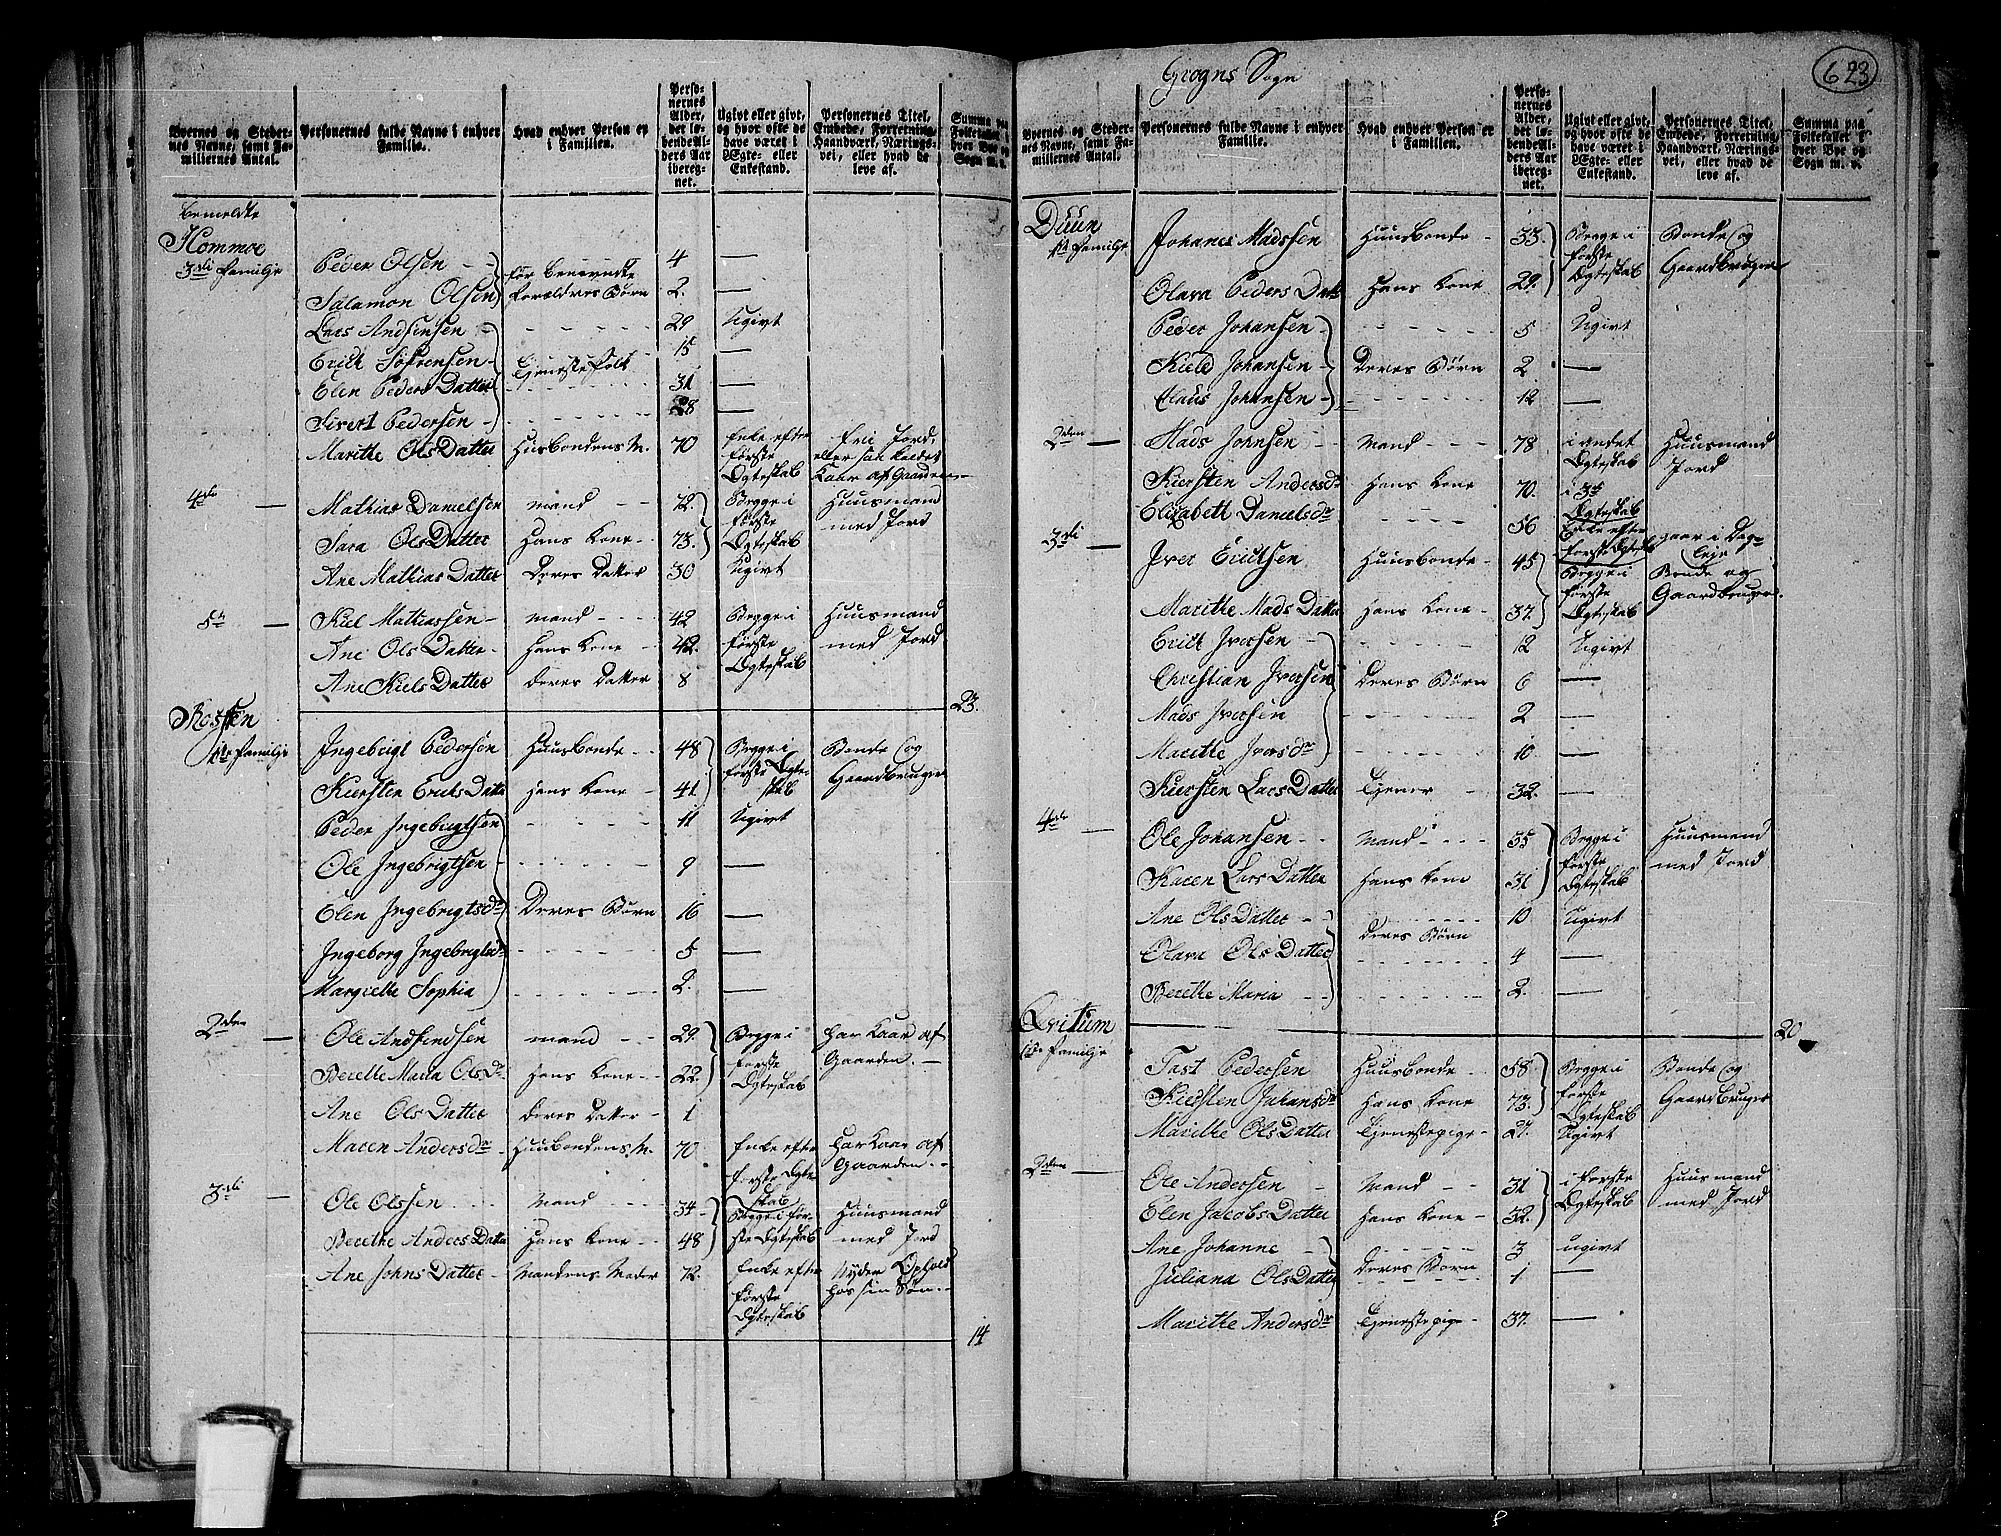 Grogns Sogn
623
Byernes og Steder-
nes Navne, samt Fa-
miliernes Antal.
Personernes fulde Navne i enhver
Familie.
Hvad enhver Person er
i Familien.
Perso-
nernes
Alder,
det lø-
bende Al-
ders Aar
ibereg-
net.
Ugivt eller givt,
og hvor ofte de
have været i
Ægte- eller
Enkestand.
Personernes Titel,
Embede, Forretning,
Haandværk, Nærings-
vei, eller hvad de
leve af.
Summa paa
Folketallet i
hver Bye og
Sogn m. v.
bemeldte
Hommoe
3die Familje Peder Olsen - - før benevndte 4 —
Salamon Olsen forældres Børn 2. —
Lars Andsensen - - - - - 29 Ugivt
Erich Sørensen - 15 —
Elen Peders Datter Tjenestefolk 31 —
Sivert Pedersen - - - - - - 28 —
Marithe Ols Datter Husbondens M. 70 Enke efter første Ægteskab fri Jord, eller saa kaldet Kaar af Gaarden
4de — Mathias Danielsen mand - - - 72. Begge i første Ægteskab Huusmand med Jord
Sara Ols Datter Hans Kone - - 73.
Ane Mathias Datter Deres Datter 30 Ugivt
5te — Kiel Mathiassen - mand - - - - 42 Begge i første Ægteskab Huusmand med Jord
Ane Ols Datter - Hans Kone - - 42.
Ane Kiels Datter deres Datter 8
23.
Rossen
1ste Familje Ingebrigt Pedersen Huusbonde - - 48 Begge i første Ægteskab Bonde og Gaardbruger
Kiersten Eriks Datter Hans Kone - 41
Peder Ingebrigtsen - - - - - - 11 Ugivt
Ole Ingebrigtsen - - - - - - - 9 —
Elen Ingebrigtsdr Deres Børn 16 —
Ingeborg Ingebrigtsdr - - - - - - 5 —
Margrethe Sophia - - - - - - - 2. —
2den — Ole Andsendsen mand - - - 29. Begge i første Ægteskab Har Kaar af Gaarden. —
Berethe Maria Olsdr Hans Kone - - 22.
Ane Ols Datter deres Datter - 1
Maren Andersdr Huusbondens M. 70 Enke efter første Ægteskab Har Kaar af Gaarden. - -
3die — Ole Olssen - - - Mand - - - 34 - Begge i første Ægteskab Huusmand med Jord
Berethe Anders Datter Hans Kone - - 48
Ane Johns Datter - Mandens Moder 72. Enke efter første Ægteskab Nyder Ophold hos sin Søn. -
14
Byernes og Steder-
nes Navne, samt Fa-
miliernes Antal.
Personernes fulde Navne i enhver
Familie.
Hvad enhver Person er
i Familien.
Perso-
nernes
Alder,
det lø-
bende Al-
ders Aar
ibereg-
net.
Ugivt eller givt,
og hvor ofte de
have været i
Ægte- eller
Enkestand.
Personernes Titel,
Embede, Forretning,
Haandværk, Nærings-
vei, eller hvad de
leve af.
Summa paa
Folketallet i
hver Bye og
Sogn m. v.
Duun
1ste Familje Johanes Madssen Huusbonde - 33. Begge i første Ægteskab Bonde og Gaardbruger
Olava Peders Datter Hans Kone - 29.
Peder Johansen - - - - - - - 5 Ugivt
Kield Johansen - Deres Børn 2 —
Claus Johansen - - - - - - - 12 —
2den — Mads Johnsen - Mand - - - 78 i andet Ægteskab Huusmand Jord
Kiersten Andersdr Hans Kone 70. i 3die Ægteskab
Elisabeth Danielsdr - - - - - 56 Enke efter første Ægteskab gaar i Dagleje
3die — Iver Erichsen Huusbonde - 45 Begge i første Ægteskab Bonde og Gaardbruger
Marithe Mads Datter Hans Kone - 37.
Erich Iversen - - - - - - - 12 Ugivt
Christian Iversen Deres Børn 6 —
Mads Iversen - - - - - - - 2 —
Marithe Iversdr - - - - - - 10 —
Kiersten Lars Datter Tjener - - 32. —
4de — Ole Johansen - - Mand - - - - 35 Begge i første Ægteskab Huusmand med Jord
Karen Lars Datter Hans Kone 31
Ane Ols Datter - - - - - - - 10 Ugivt
Olava Ols Datter Deres Børn 4 —
Berethe Maria - - - - - - - - 2. —
20
1ste Familje Tast Pedersen Huusbonde - - 58 Begge i første Ægteskab Bonde og Gaardbruger
Kiersten Johansdr Hans Kone 73.
Marithe Ols Datter Tjenestepige - 27. Ugivt
2den — Ole Andersen - Mand - - 31 i første Ægteskab Huusmand med Jord
Elen Jacobs Datter Hans Kone - 32.
Ane Johanne - - - - - - 3 ugivt
Juliana Ols Datter Deres Børn 1 —
Marithe Andersdr Tjenestepige - 37. —